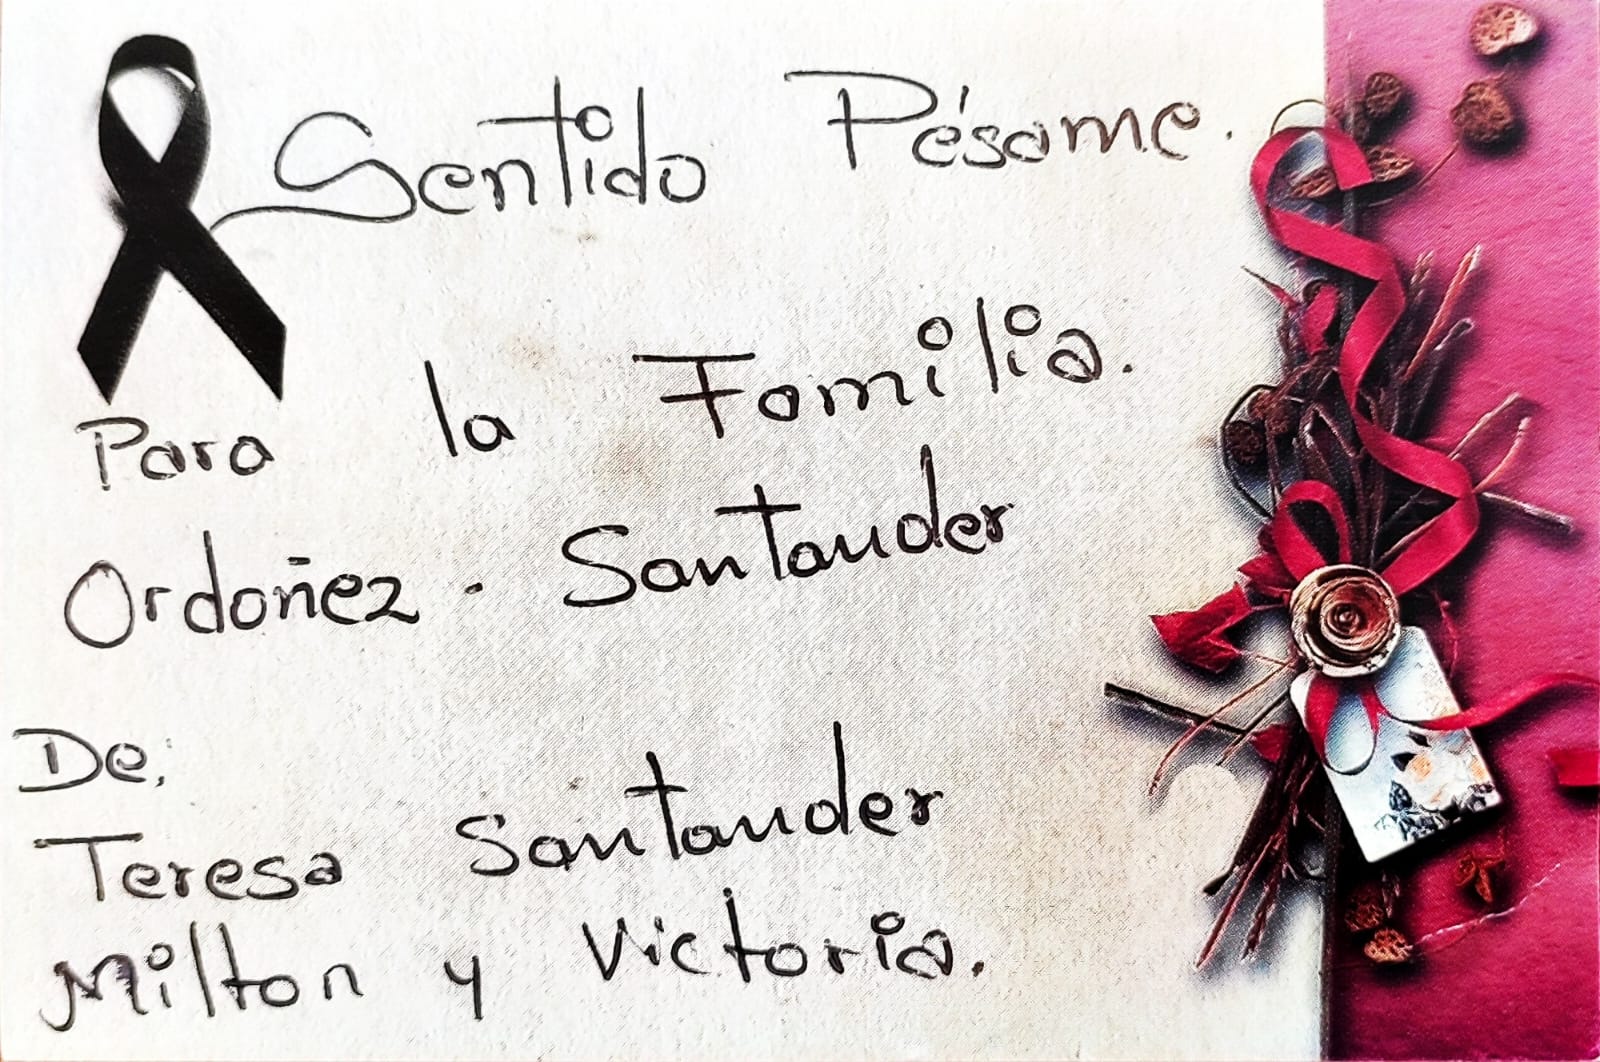 Sentido Pésame.
Para la Familia.
Ordoñez - Santander
De;
Teresa Santander
Milton y Victoria.